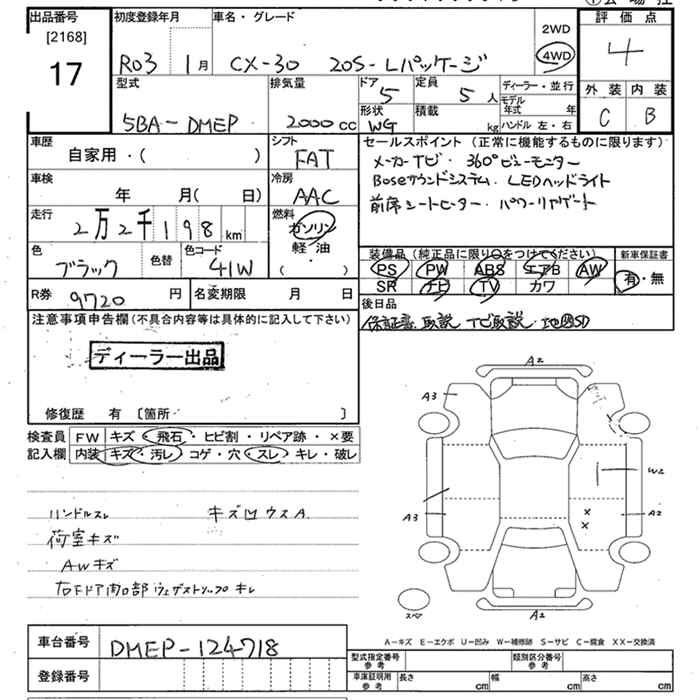 出品番号 初度登録年月 車名・グレード 2WD 評価点
[2168]
17 R03 1月 CX-30 20S-Lパッケージ 4WD 4
型式 排気量 ドア 定員 ディーラー・並行 外装 内装
5BA-DMEP 2000cc 5 5人 モデル年式 年 C B
形状 積載
WG kg ハンドル 左・右
車歴 シフト セールスポイント(正常に機能するものに限ります)
自家用・( ) FAT メーカーナビ・360°ビューモニター
車検 冷房 Boseサウンドシステム・LEDヘッドライト
年 月( 日) AAC 前席シートヒーター・パワーリヤゲート
走行 燃料
2万2千198km ガソリン
軽・油
( )
色 色替 色コード 装備品(純正品に限り○をつけてください) 新車保証書
ブラック 41W PS PW ABS エアB AW 有・無
SR ナビ TV カワ
R券 9720円 名変期限 月 日 後日品
注意事項申告欄(不具合内容等は具体的に記入して下さい) 保証書、取説 ナビ取説・地図SD
ディーラー出品
修復歴 有 [箇所 ]
検査員 FW キズ・飛石・ヒビ割・リペア跡・×要
記入欄 内装 キズ・汚レ・コゲ・穴・スレ・キレ・破レ
A2
A3
W2
A3 A2
スペア
A2
ハンドルスレ キズ凹ウスA
荷室キズ
AWキズ
右Fドア開口部ウェザストリップキレ
A-キズ E-エクボ U-凹み W-補修跡 S-サビ C-腐食 XX-交換済
車台番号 DMEP-124718
型式指定番号 参考 類別区分番号 参考
登録番号
車庫証明用 参考 長さ cm 幅 cm 高さ cm